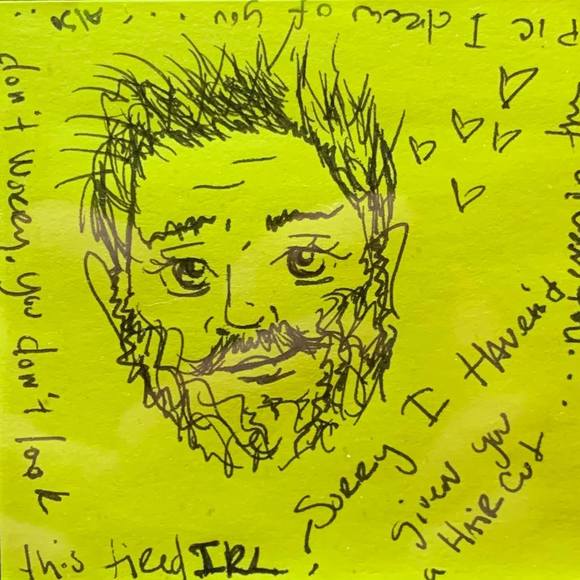 Sorry I Haven't
given you
a HAIR cut
... not even in the
Pic I drew of you ... also ...
don't worry, you don't look
this tired IRL